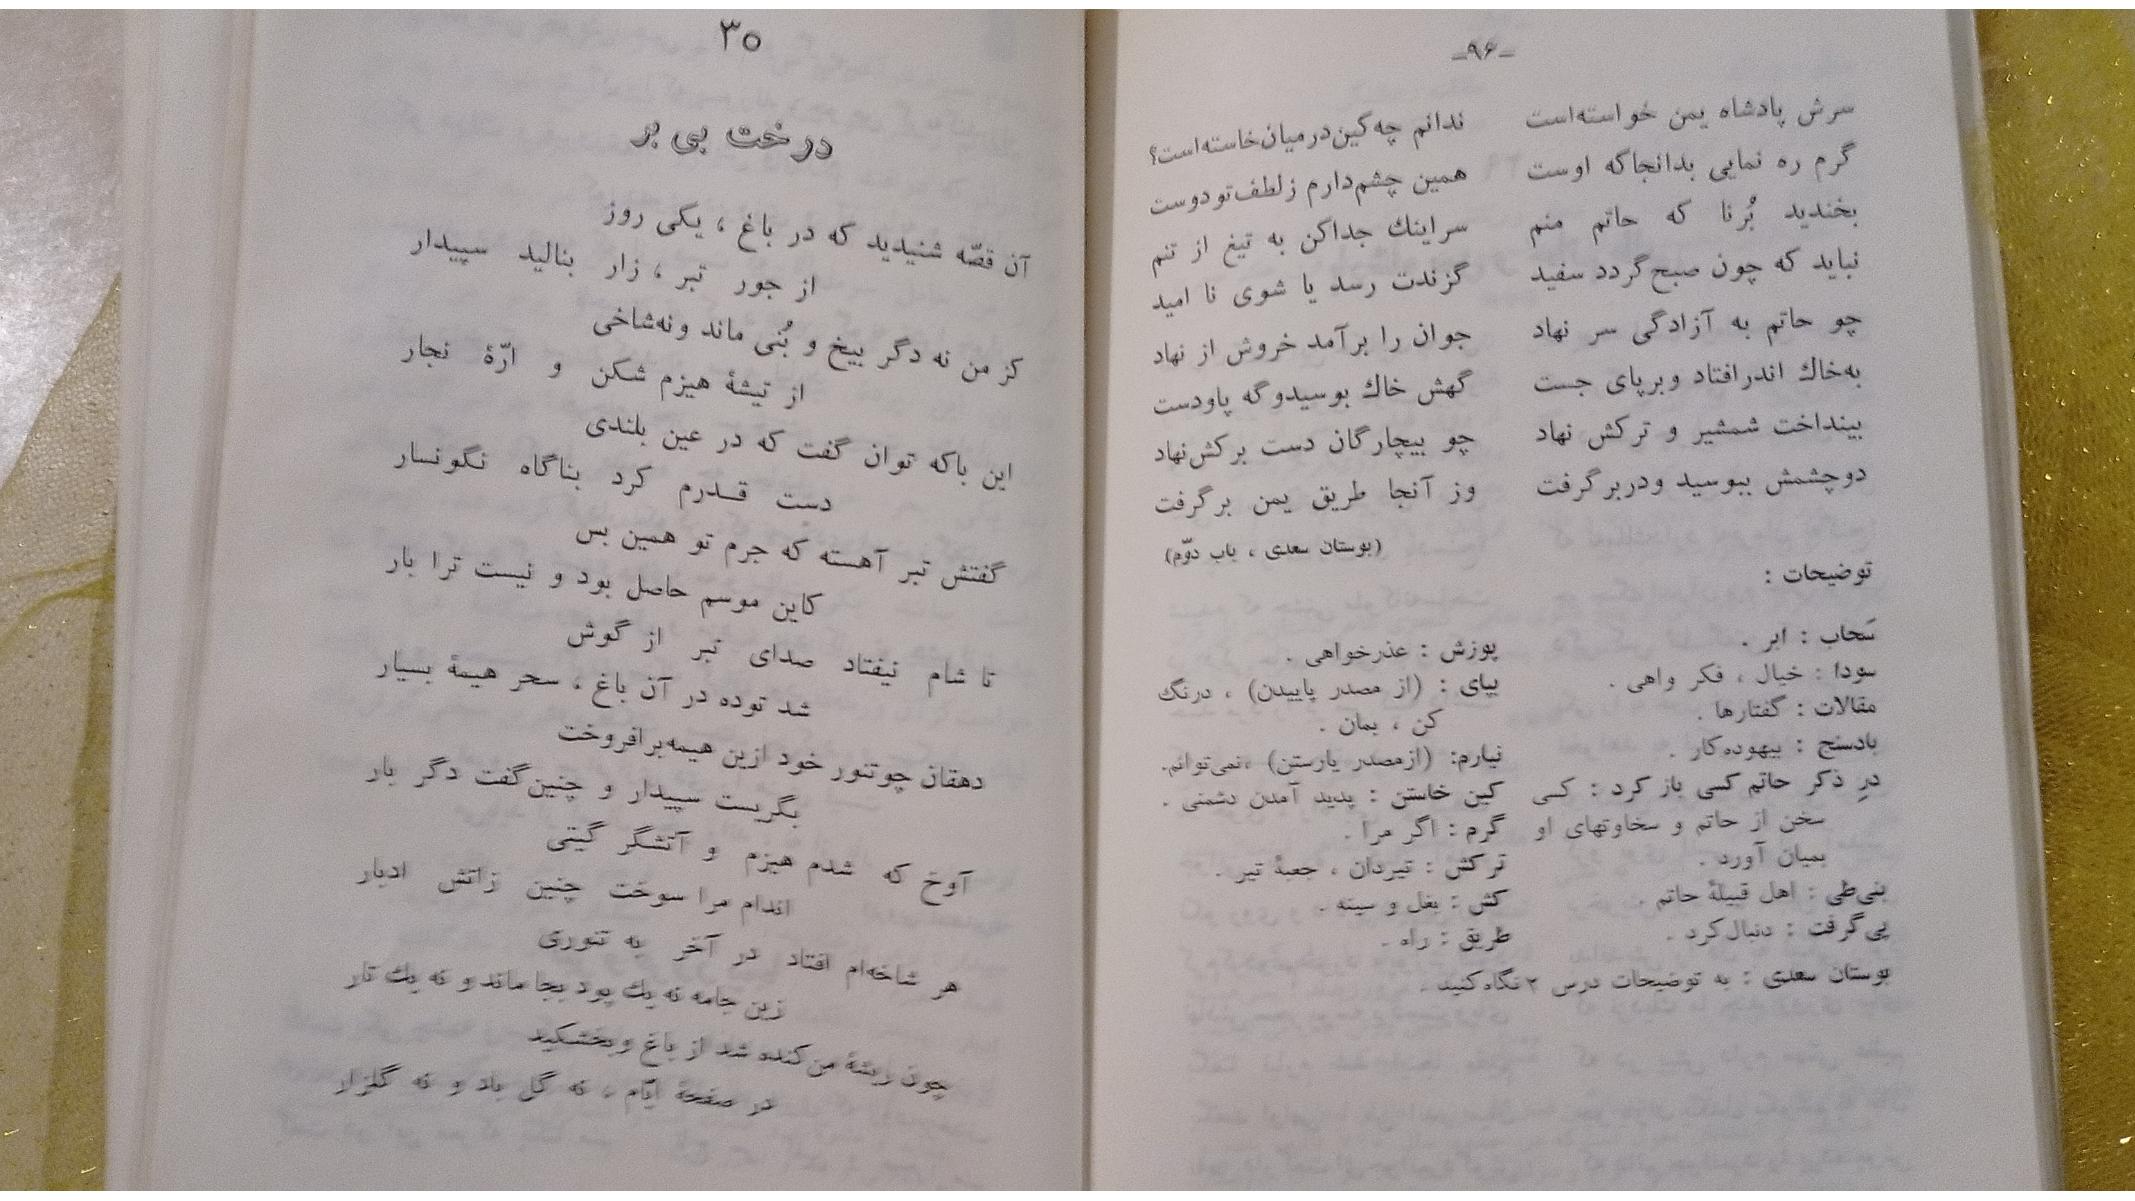 -۹۶-
سرش پادشاه یمن خواسته‌است ندانم چه کین در میان خاسته‌است؟
گرم ره نمایی بدانجا که اوست همین چشم دارم ز لطف تو دوست
بخندید بُرنا که حاتم منم سر اینك جدا کن به تیغ از تنم
نباید که چون صبح گردد سفید گزندت رسد یا شوی نا امید
چو حاتم به آزادگی سر نهاد جوان را برآمد خروش از نهاد
به‌خاك اندر افتاد و بر پای جست گهش خاك بوسید و گه پا و دست
بینداخت شمشیر و ترکش نهاد چو بیچارگان دست بر کش نهاد
دو چشمش ببوسید و در بر گرفت وز آنجا طریق یمن بر گرفت
(بوستان سعدی ، باب دوّم)
توضیحات :
سَحاب : ابر .
سودا : خیال ، فکر واهی .
مقالات : گفتارها .
بادسنج : بیهوده‌کار .
درِ ذکر حاتم کسی باز کرد : کسی
سخن از حاتم و سخاوتهای او
بمیان آورد .
بنی‌طی : اهل قبیلهٔ حاتم .
پی گرفت : دنبال کرد .
پوزش : عذرخواهی .
بپای : (از مصدر پاییدن) ، درنگ
کن ، بمان .
نیارم: (از مصدر یارستن) ، نمی‌توانم.
کین خاستن : پدید آمدن دشمنی .
گرم : اگر مرا .
ترکش : تیردان ، جعبهٔ تیر .
کش : بغل و سینه .
طریق : راه .
بوستان سعدی : به توضیحات درس ۲ نگاه کنید .
۳۰
درخت بی بر
آن قصّه شنیدید که در باغ ، یکی روز
از جور تبر ، زار بنالید سپیدار
کز من نه دگر بیخ و بُنی ماند و نه شاخی
از تیشهٔ هیزم شکن و ارّهٔ نجار
این با که توان گفت که در عین بلندی
دست قـدرم کرد بناگاه نگونسار
گفتش تبر آهسته که جرم تو همین بس
کاین موسم حاصل بود و نیست ترا بار
تا شام نیفتاد صدای تبر از گوش
شد توده در آن باغ ، سحر هیمهٔ بسیار
دهقان چو تنور خود ازین هیمه برافروخت
بگریست سپیدار و چنین گفت دگر بار
آوخ که شدم هیزم و آتشگر گیتی
اندام مرا سوخت چنین ز اتش ادبار
هر شاخه‌ام افتاد در آخر به تنوری
زین جامه نه یك پود بجا ماند و نه یك تار
چون ریشهٔ من کنده شد از باغ و بخشکید
در صفحهٔ ایّام ، نه گل باد و نه گلزار